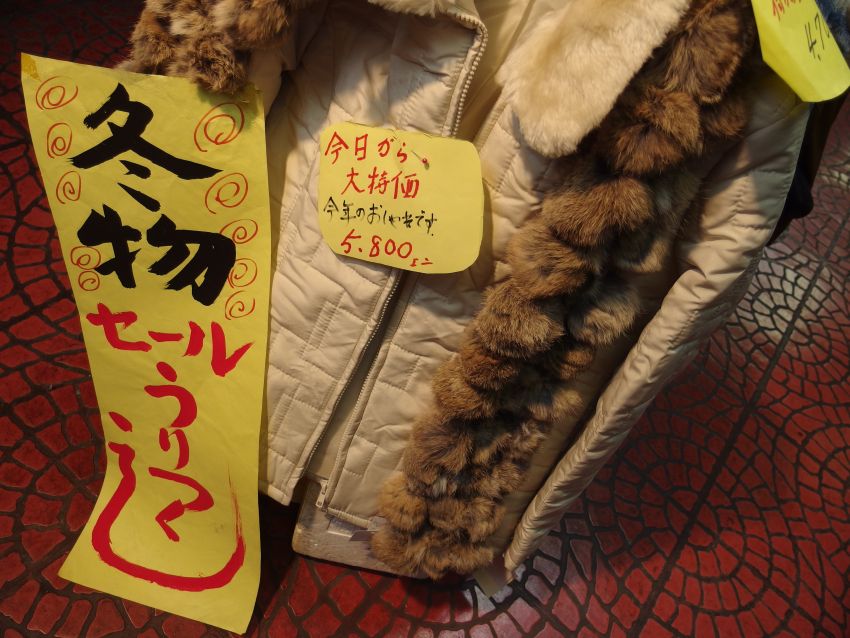 冬物
セール
うりつくし
今日から、
大特価
今年のおしゃれです
5.800エン
4.7